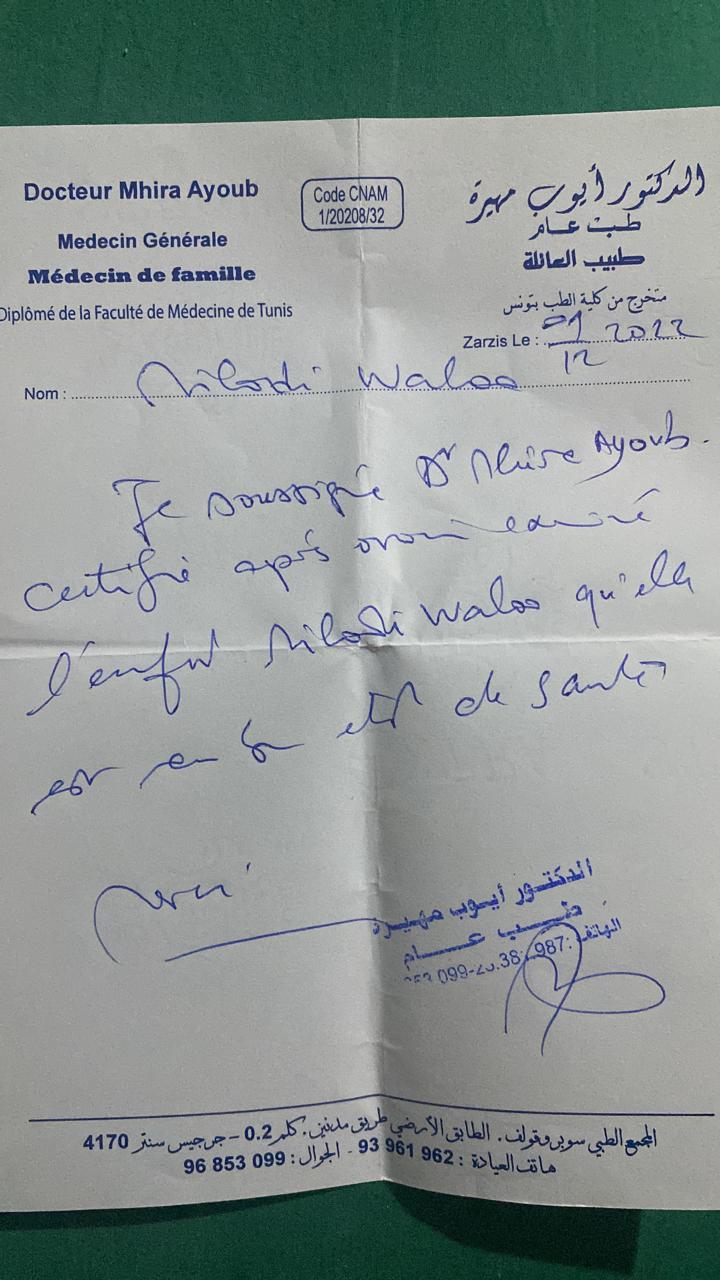 Docteur Mhira Ayoub
Medecin Générale
Médecin de famille
Diplômé de la Faculté de Médecine de Tunis
Code CNAM
1/20208/32
الدكتور أيوب مهيرة
طب عام
طبيب العائلة
متخرج من كلية الطب بتونس
Zarzis Le : 09/12 2022
Nom : Milodi Walaa
Je soussigné Dr Mhira Ayoub.
certifie après avoir examiné
l'enfant Milodi Walaa qu'elle
est en bon état de santé
Merci
الدكتور أيوب مهيرة
طب عام
الهاتف:
المجمع الطبي سوبر وقولف. الطابق الأرضي طريق مدنين، كلم 0.2 – جرجيس سنتر 4170
هاتف العيادة : 962 961 93 - الجوال : 099 853 96